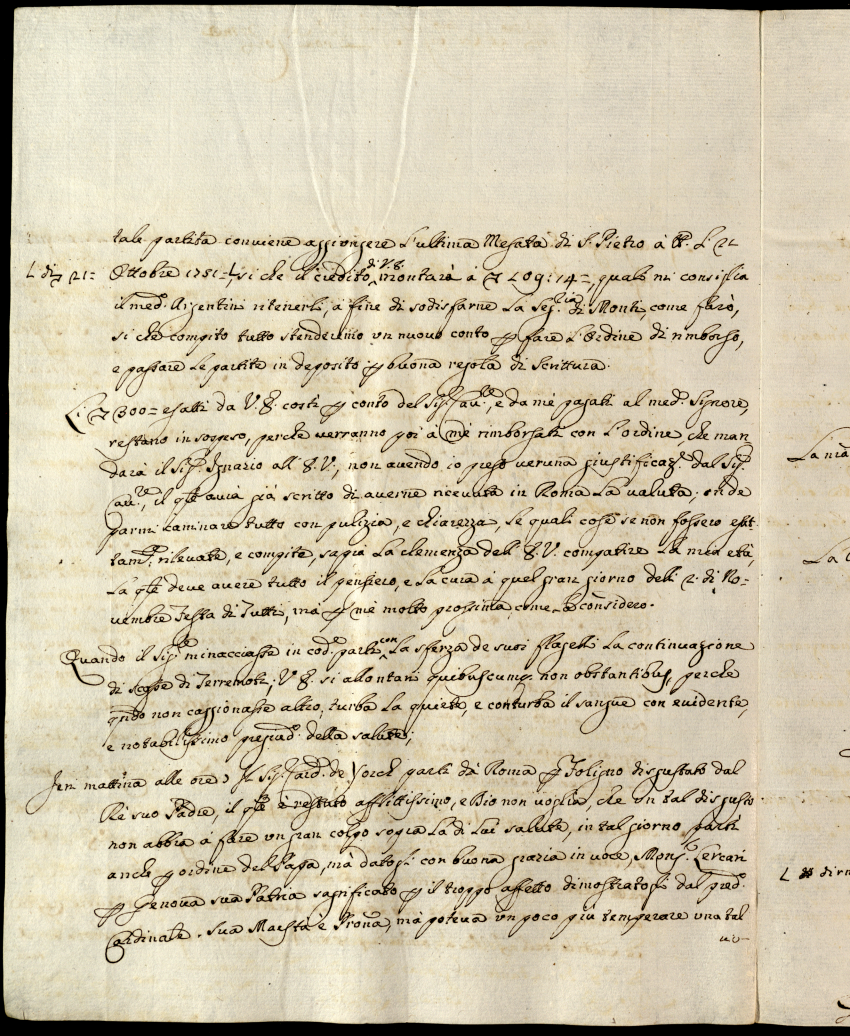 tale partita conviene aggiongere l'ultima Mesata di S. Pietro à tt.o li 21
L di 7 21= Ottobre 1751=L, si che il credito di V.E. montarà à 7 209:14=, quali mi consiglia
il med.o Argentini ritenerli, a fine di sodisfarne la Seg.ria di Monti, come farò,
si che compito tutto stenderemo un nuovo conto p fare l'ordine di rimborso,
e passare le partite in deposito p buona regola di scrittura.
Li 7 300= esatti da V.E. costi p conto del Sig.r Cav.re, e da mè pagati al med.o Signore,
restano in sospeso, perche verranno poi à mè rimborsati con l'ordine, che man
darà il Sig.r Ignazio all'E.V., non avendo io preso veruna giustificaz.e dal Sig.r
Cav.re, il qle avrà già scritto di averne ricevuta in Roma la valuta; onde
parmi caminare tutto con pulizia, e chiarezza, le quali cose se non fossero esat-
tam.te rilevate, e compite, sapia la clemenza dell'E.V. compatire la mia età,
la qle deve avere tutto il pensiero, e la cura à quel gran giorno delli 2. di No=
vembre Festa di Tutti, mà p mè molto prossima, come la considero.
Quando il Sig.re minacciasse in cod.e parti con la sferza de suoi flagelli la continuazione
di scosse di Terremoti; V.E. si allontani quibuscumq. non obstantibus, perche
qndo non cagionasse altro, turba la quiete, e conturba il sangue con evidente,
e notabilissimo pregiud.o della salute;
Jeri mattina alle ore Il Sig.r Card. de Yorch partì dà Roma p Foligno disgustato dal
Rè suo Padre, il qle è restato afflittissimo, e Dio non voglia, che un tal disgusto
non abbia à fare un gran colpo sopra la di Lui salute, in tal giorno partì
anche p ordine del Papa, mà datogli con buona grazia in voce, Mons.r Lercari
p Genova sua Patria sagrificato p il troppo affetto dimostratogli dal pred.o
Cardinale. Sua Maestà è Prona, mà poteva un poco più temperare una tal
La
La
L